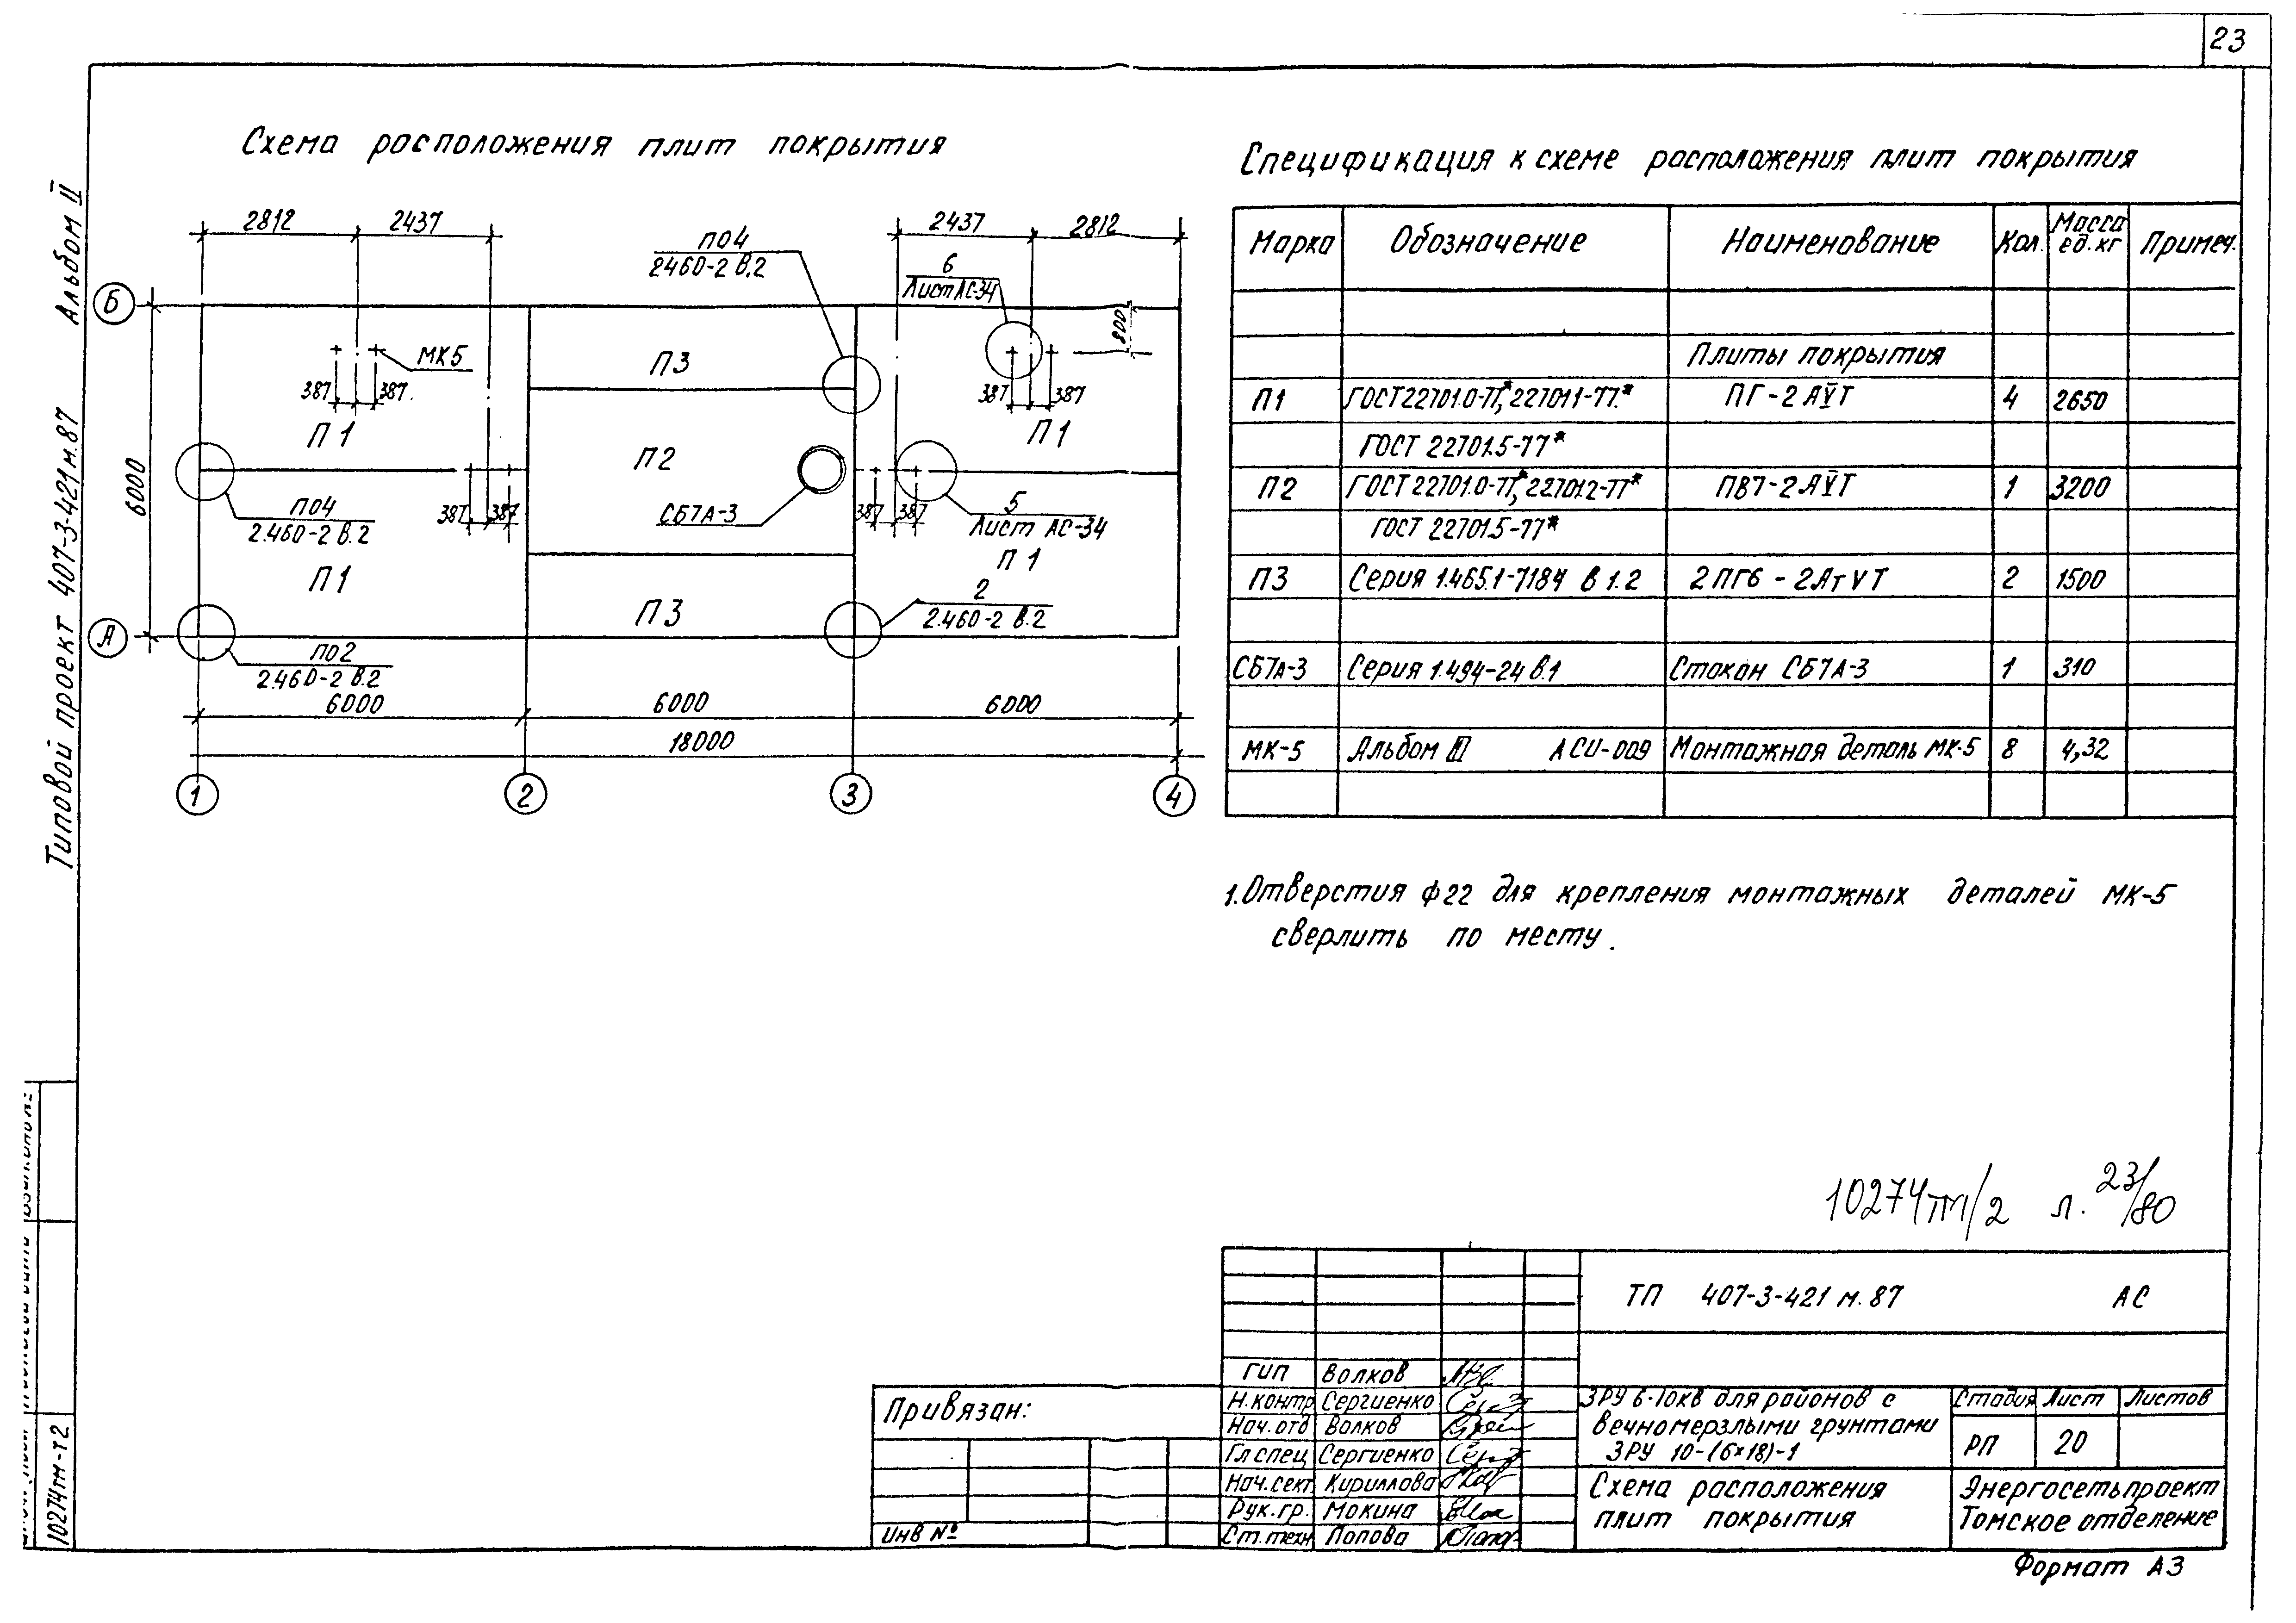 23
Схема расположения плит покрытия
2812
2437
2437
2812
ПО4
2460-2 в.2
6
Лист АС-34
Б
800
МК5
П3
387
387
387
387
П1
П1
П2
6000
ПО4
2.460-2 в.2
387
387
СБ7А-3
387
387
5
Лист АС-34
П1
П1
П3
2
2.460-2 в.2
А
ПО2
2.460-2 в.2
6000
6000
6000
18000
1
2
3
4
Спецификация к схеме расположения плит покрытия
Марка Обозначение Наименование Кол. Масса ед.кг Примеч.
Плиты покрытия
П1 ГОСТ22701.0-77*, 22701.1-77* ПГ-2АVТ 4 2650
ГОСТ 22701.5-77*
П2 ГОСТ22701.0-77*, 22701.2-77* ПВ7-2АVТ 1 3200
ГОСТ 22701.5-77*
П3 Серия 1.465.1-7184 в 1.2 2ПГ6-2АтVТ 2 1500
СБ7А-3 Серия 1.494-24 в.1 Стакан СБ7А-3 1 310
МК-5 Альбом III АСИ-009 Монтажная деталь МК-5 8 4,32
1. Отверстия ф22 для крепления монтажных деталей МК-5
сверлить по месту.
10274тм/2 л. 23/80
ТП 407-3-421м.87 АС
ГИП Волков
Н.контр Сергиенко
Нач.отд Волков
Гл спец Сергиенко
Нач.сект Кириллова
Рук.гр. Мокина
Ст.техн Попова
ЗРУ 6-10кв для районов с
вечномерзлыми грунтами
ЗРУ 10-(6×18)-1
Стадия Лист Листов
РП 20
Схема расположения
плит покрытия
Энергосетьпроект
Томское отделение
Привязан:
Инв №
Формат А3
Типовой проект 407-3-421м.87 Альбом II
10274тм-т2